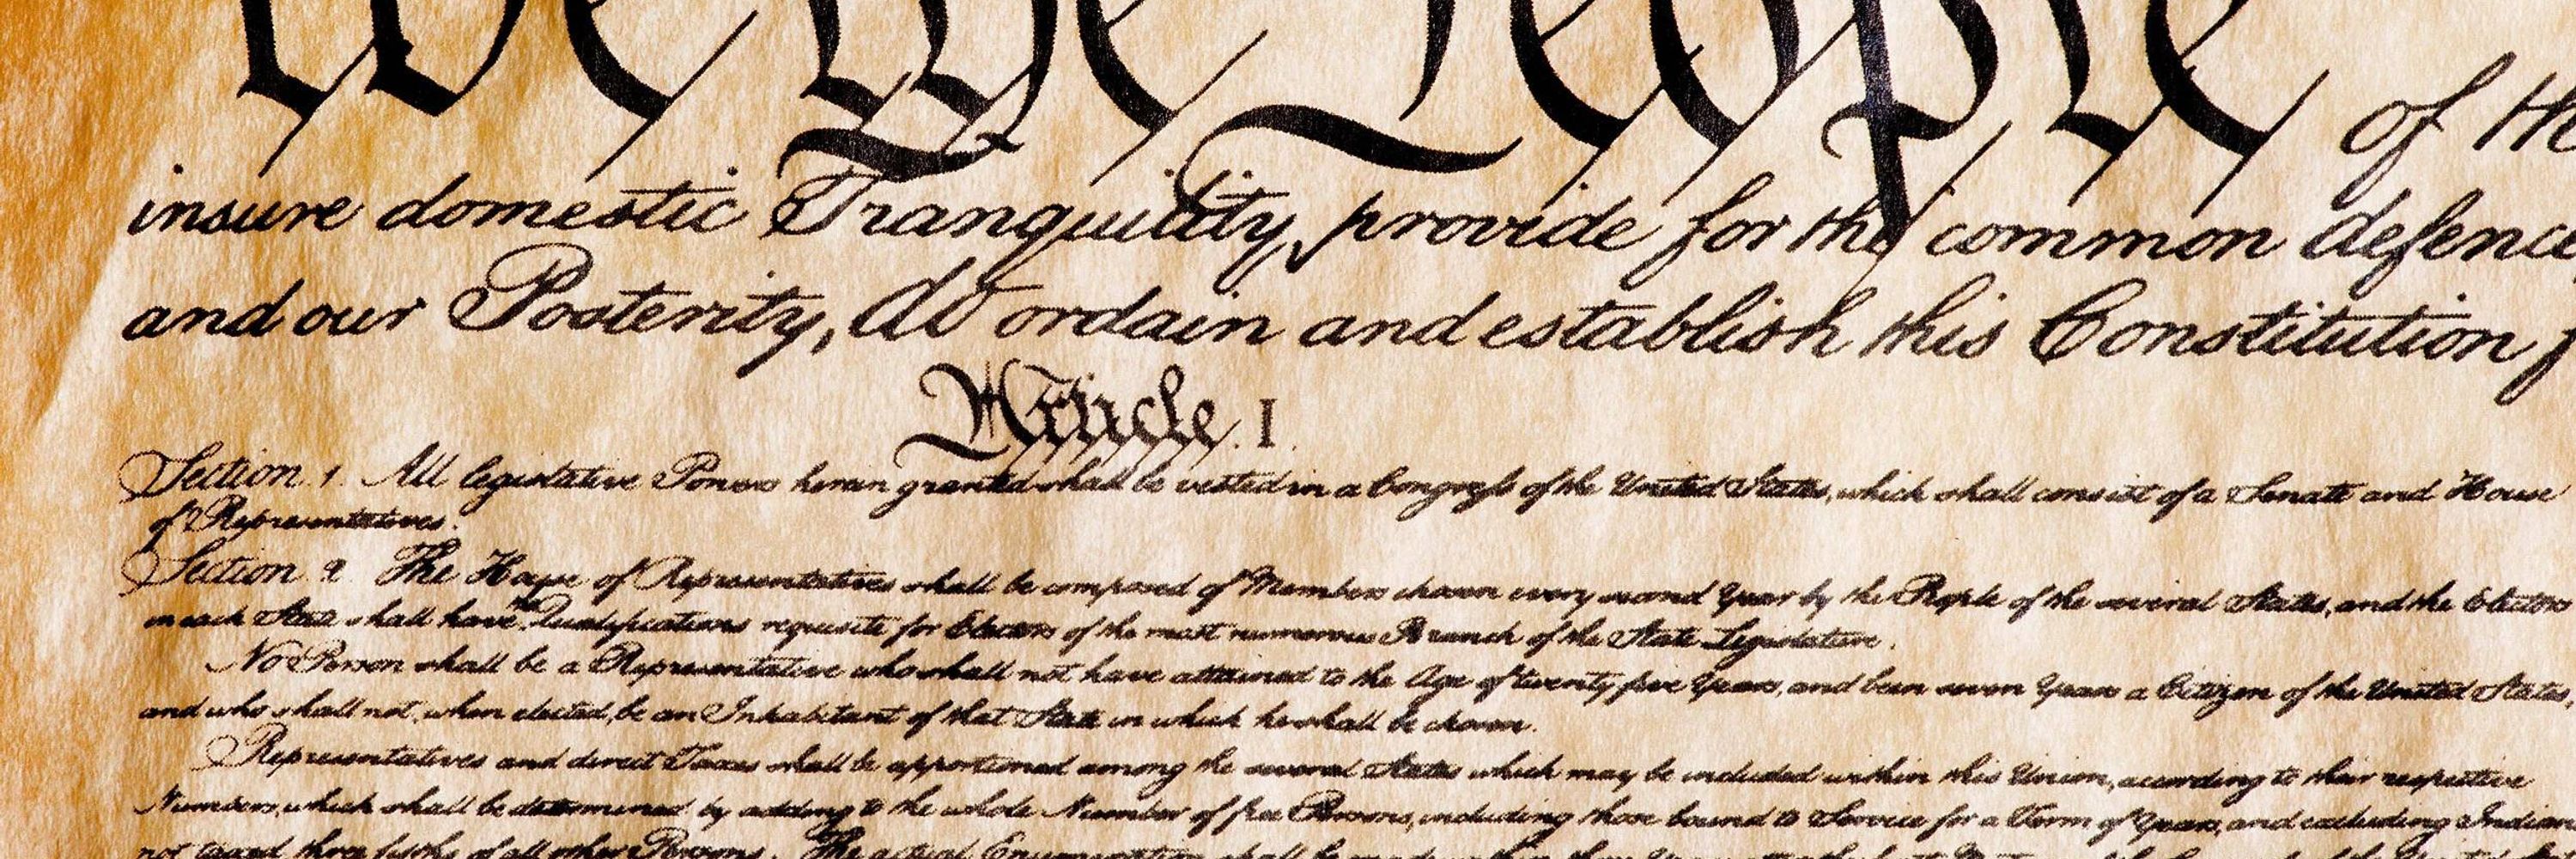 We the People of the
insure domestic Tranquility, provide for the common defence
and our Posterity, do ordain and establish this Constitution f
Article. I.
Section. 1. All legislative Powers herein granted shall be vested in a Congress of the United States, which shall consist of a Senate and House
of Representatives.
Section. 2. The House of Representatives shall be composed of Members chosen every second Year by the People of the several States, and the Electors
in each State shall have the Qualifications requisite for Electors of the most numerous Branch of the State Legislature.
No Person shall be a Representative who shall not have attained to the Age of twenty five Years, and been seven Years a Citizen of the United States,
and who shall not, when elected, be an Inhabitant of that State in which he shall be chosen.
Representatives and direct Taxes shall be apportioned among the several States which may be included within this Union, according to their respective
Numbers, which shall be determined by adding to the whole Number of free Persons, including those bound to Service for a Term of Years, and excluding Indians
not taxed, three fifths of all other Persons. The actual Enumeration shall be made